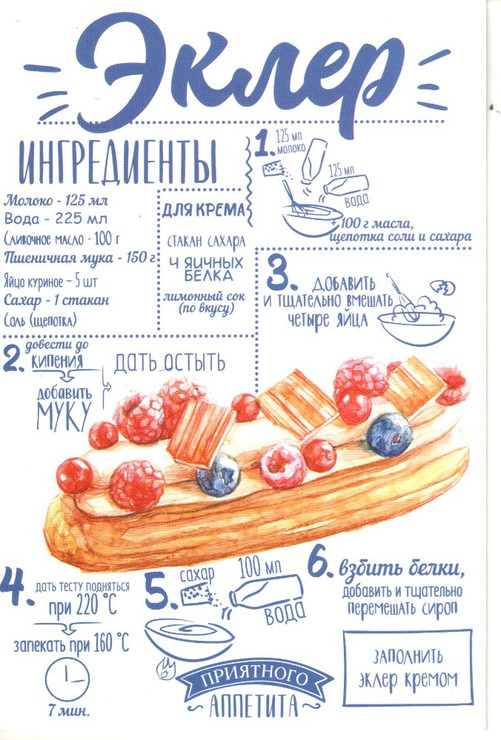 Эклер
ИНГРЕДИЕНТЫ
Молоко - 125 мл
Вода - 225 мл
Сливочное масло - 100 г
Пшеничная мука - 150 г
Яйцо куриное - 5 шт
Сахар - 1 стакан
Соль (щепотка)
ДЛЯ КРЕМА
СТАКАН САХАРА
4 ЯИЧНЫХ
БЕЛКА
лимонный сок
(по вкусу)
1.
125 мл
молоко
125 мл
вода
+ 100 г масла,
щепотка соли и сахара
2. довести до
КИПЕНИЯ
добавить
МУКУ
ДАТЬ ОСТЫТЬ
3. ДОБАВИТЬ
И ТЩАТЕЛЬНО ВМЕШАТЬ
ЧЕТЫРЕ ЯЙЦА
4. ДАТЬ ТЕСТУ ПОДНЯТЬСЯ
при 220 °С
запекать при 160 °С
7 мин.
5. сахар
100 мл
вода
6. взбить белки,
добавить и тщательно
перемешать сироп
ЗАПОЛНИТЬ
ЭКЛЕР КРЕМОМ
ПРИЯТНОГО
АППЕТИТА